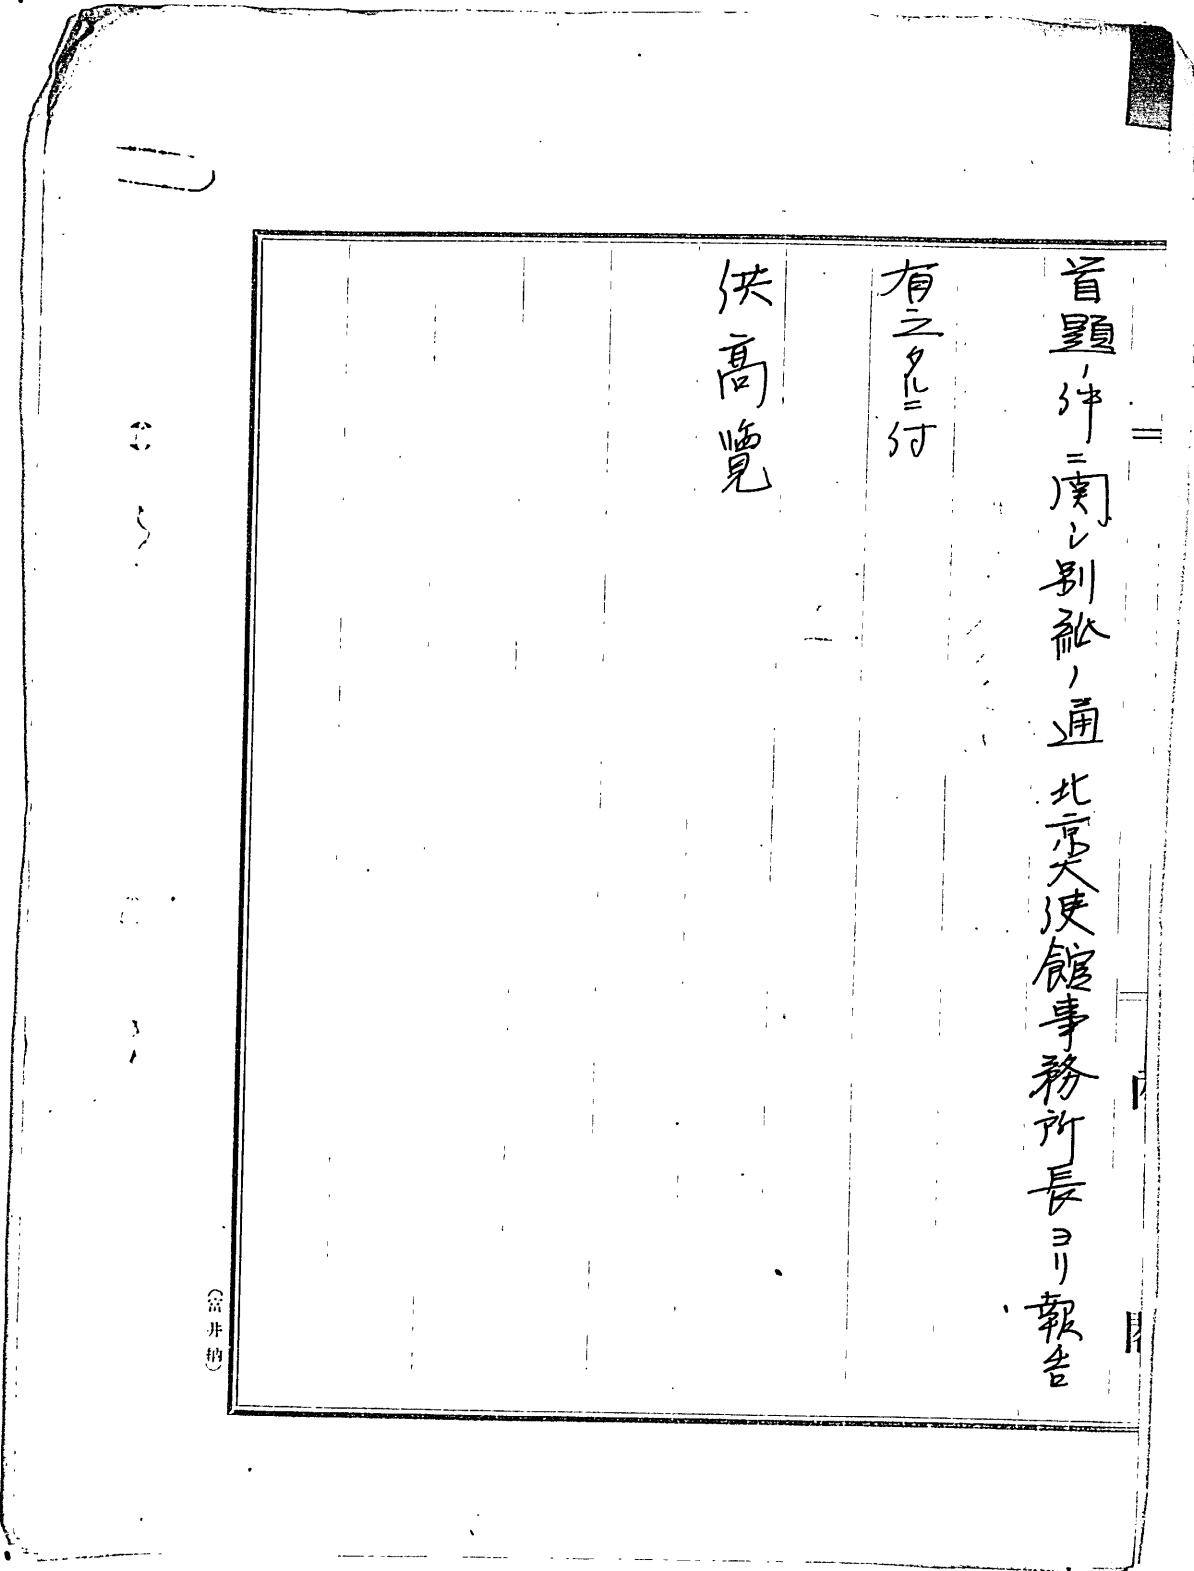 首題ノ件ニ関シ別紙ノ通北京大使館事務所長ヨリ報告
有之タルニ付
供高覽
(富井納)